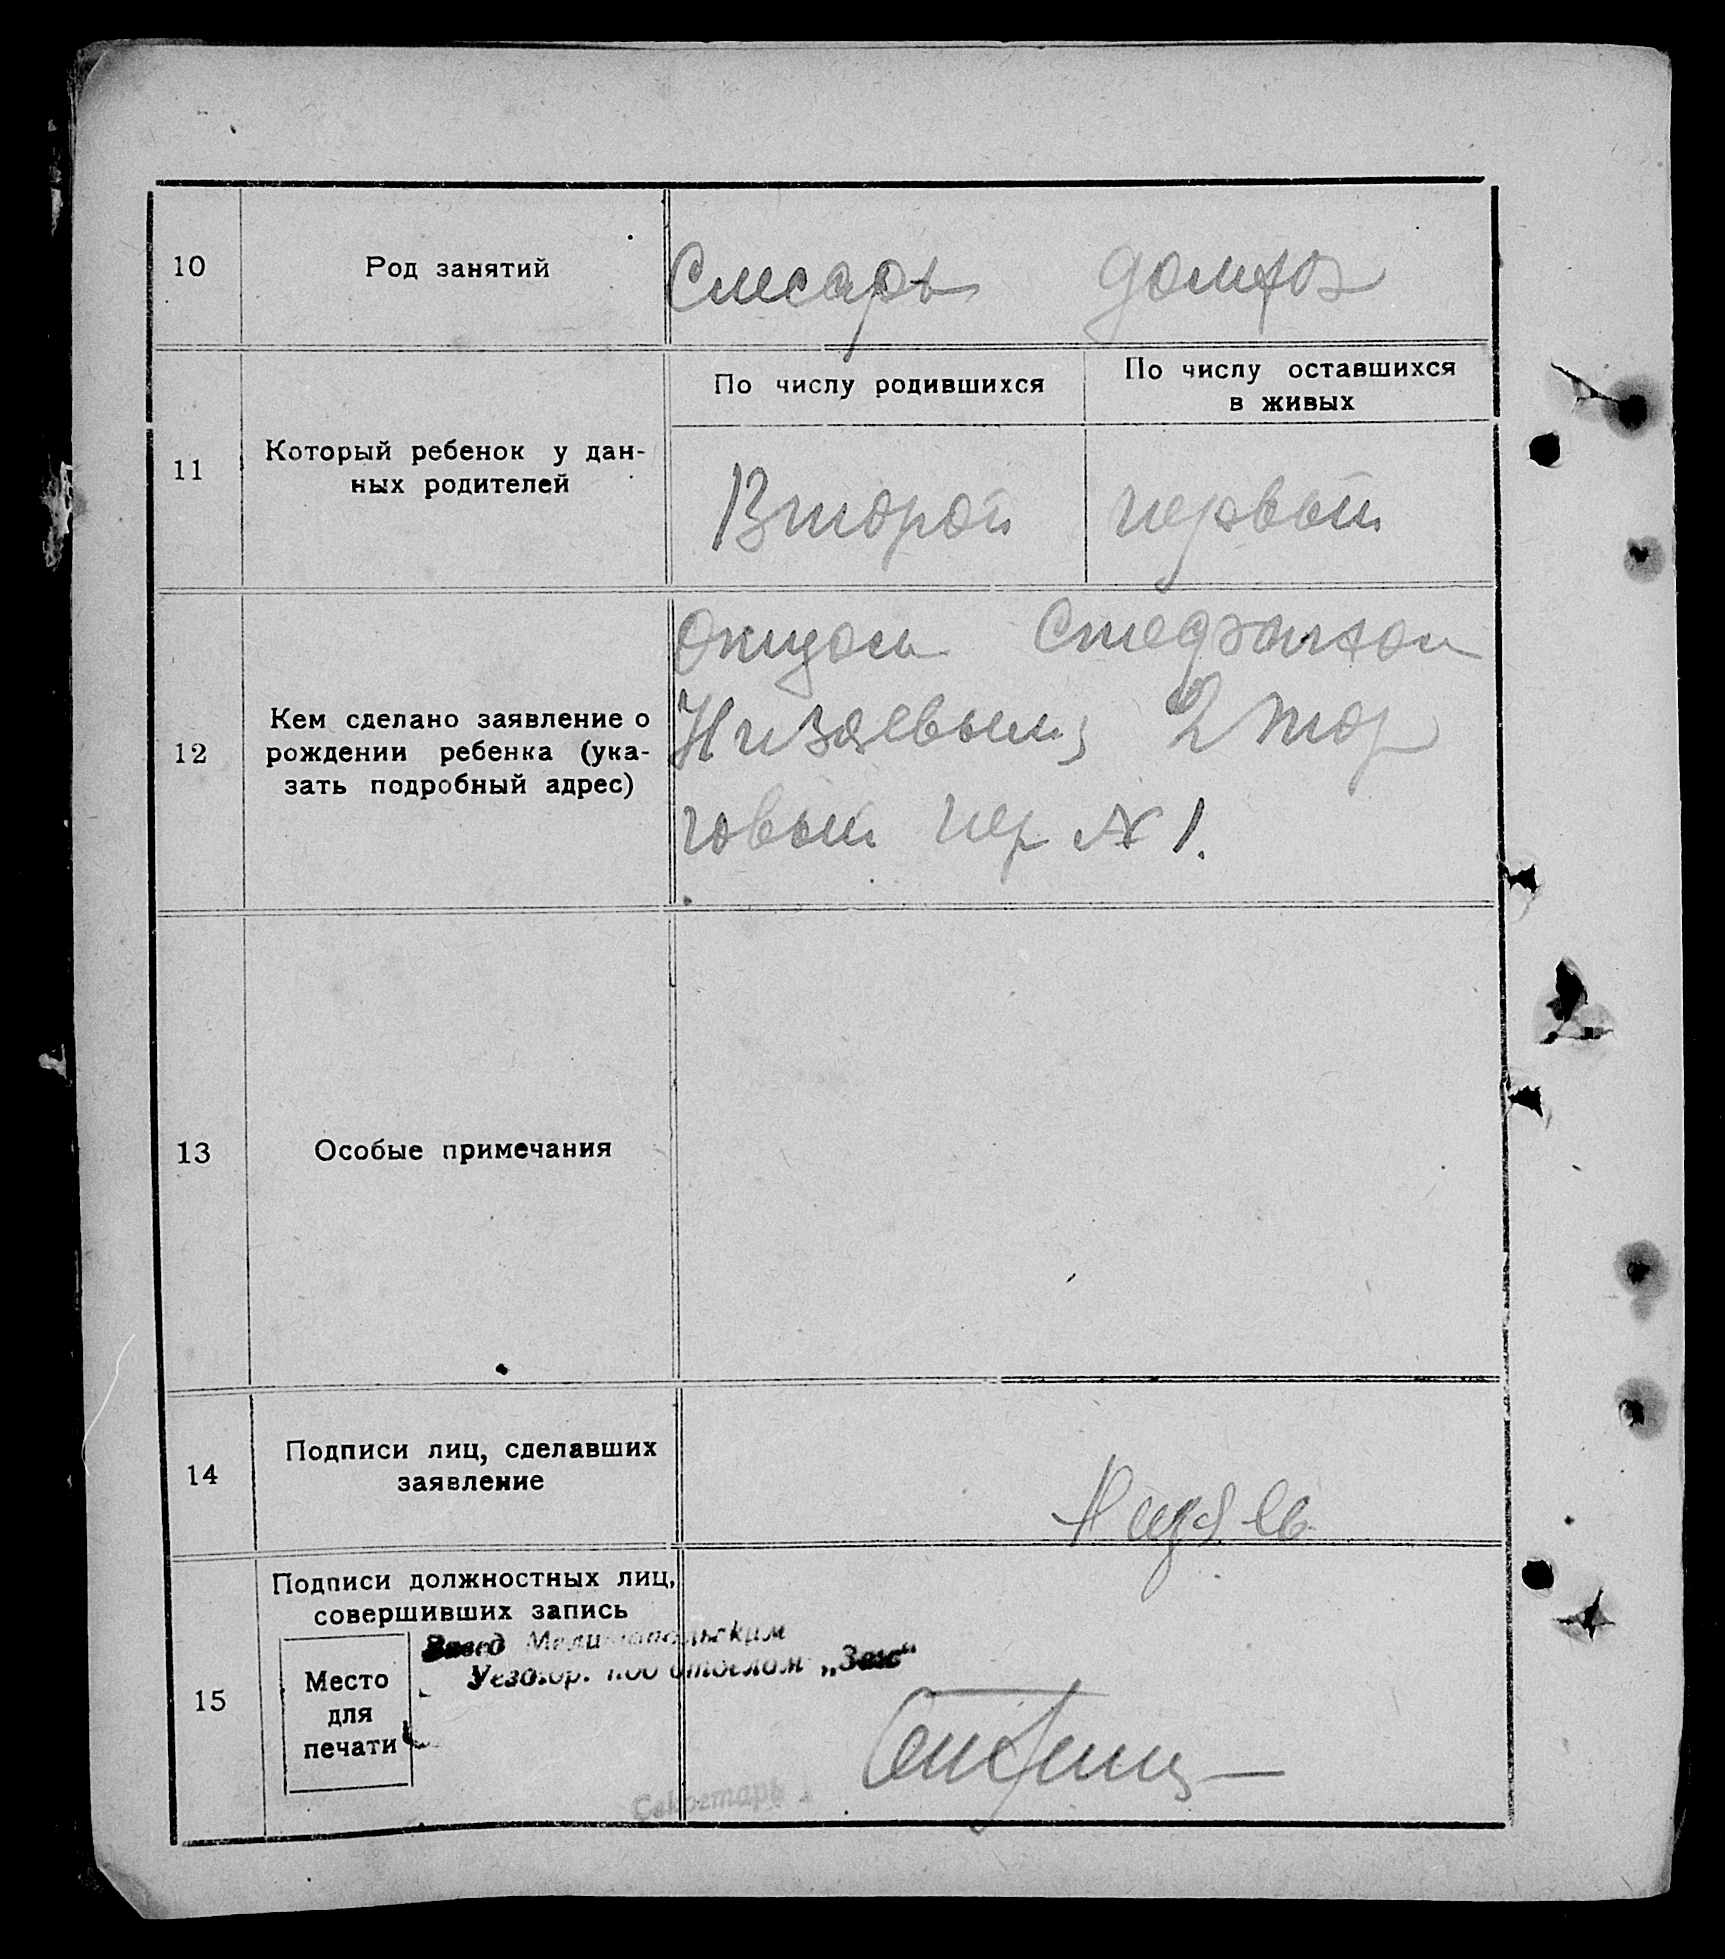 10 Род занятий Слесарь домхоз
11 Который ребенок у дан-
ных родителей
По числу родившихся
По числу оставшихся
в живых
Второй первый
12 Кем сделано заявление о
рождении ребенка (ука-
зать подробный адрес)
Отцом Стефаном
Низяевым, 2 тор
говый пер № 1.
13 Особые примечания
14 Подписи лиц, сделавших
заявление
15 Подписи должностных лиц,
совершивших запись
Место
для
печати
Завед Мелитопольским
Уездгор. под отделом „Загс“
Секретарь